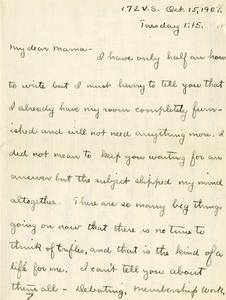 172 V.S. Oct. 15, 1907.
Tuesday 1:15.
My dear Mama-
I have only half an hour
to write but I must hurry to tell you that
I already have my room completely furn-
ished and will not need anything more. I
did not mean to keep you waiting for an
answer but the subject slipped my mind
altogether. There are so many big things
going on now that there is no time to
think of trifles, and that is the kind of a
life for me. I can't tell you about
them all - Debating, Membership Work,